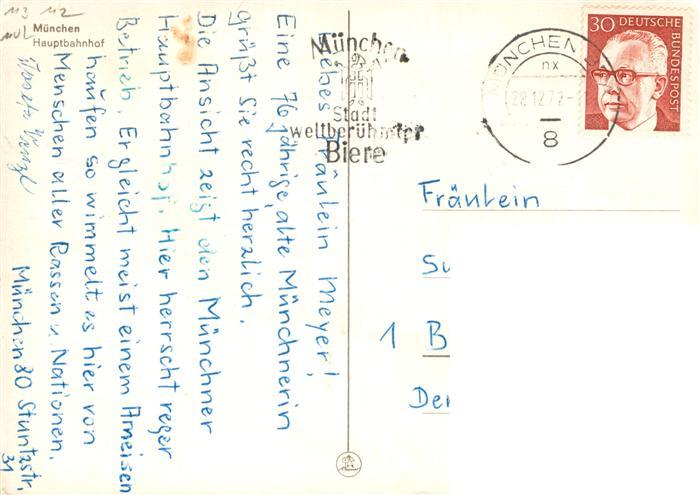 113 112
München
Hauptbahnhof
Liebes Fräulein Meyer!
Eine 76 jährige, alte Münchnerin
grüßt Sie recht herzlich.
Die Ansicht zeigt den Münchner
Hauptbahnhof. Hier herrscht reger
Betrieb. Er gleicht meist einem Ameisen
haufen so wimmelt es hier von
Menschen aller Rassen u. Nationen.
München 80 Stuntzstr.
31
München
Stadt
weltberühmter
Biere
MÜNCHEN
nx
28.12.72-
8
30 DEUTSCHE
BUNDESPOST
Fräulein
Su
1 B
Der